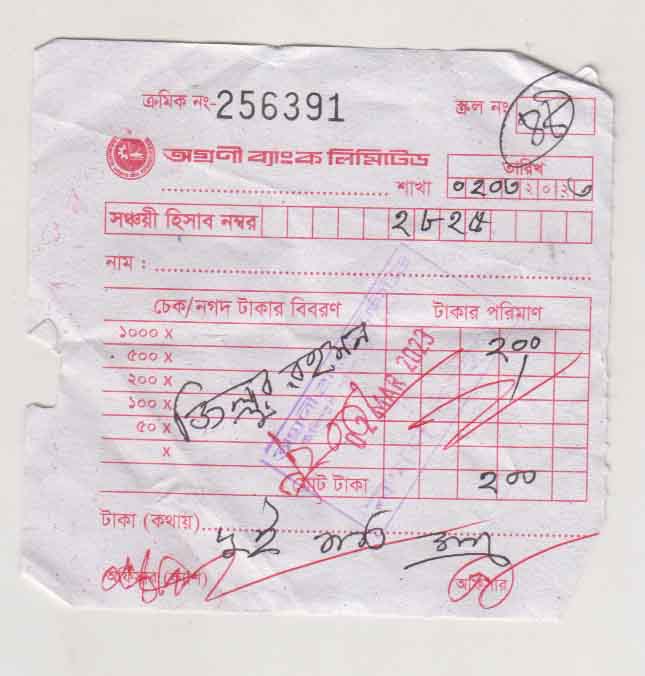 ক্রমিক নং-256391
স্ক্রল নং
অগ্রণী ব্যাংক লিমিটেড
তারিখ
শাখা
০২০৩২০২৩
সঞ্চয়ী হিসাব নম্বর ২৮২৫
নাম :
চেক/নগদ টাকার বিবরণ
টাকার পরিমাণ
১০০০ X
২০০
৫০০ X
২০০ X
জিল্লুর রহমান
02 MAR 2023
১০০ X
৫০ X
X
মোট টাকা
২০০
টাকা (কথায়)
দুই শত
অফিসার